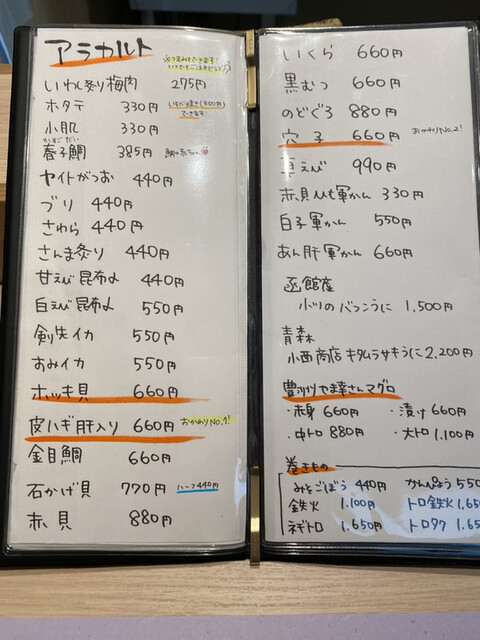 アラカルト
いわし炙り梅肉 275円
ホタテ 330円 いそべ焼き(400円)できます!
小肌 330円
かすごだい
春子鯛 385円 鯛の赤ちゃん
ヤイトがつお 440円
ブリ 440円
さわら 440円
さんま炙り 440円
甘えび昆布〆 440円
白えび昆布〆 550円
剣先イカ 550円
すみイカ 550円
ホッキ貝 660円
皮ハギ肝入り 660円 おかわりNo.1!
金目鯛 660円
石かげ貝 770円 ハーフ440円
赤貝 880円
いくら 660円
黒むつ 660円
のどぐろ 880円
穴子 660円 おかわりNo.2!
えび 990円
赤貝ひも軍かん 330円
白子軍かん 550円
あん肝軍かん 660円
函館産
小川のバフンうに 1,500円
青森
小西商店キタムラサキうに 2,200円
豊洲やま幸さんマグロ
・赤身 660円 ・漬け 660円
・中トロ 880円 ・大トロ 1,100円
巻きもの
みそごぼう 440円 かんぴょう 550
鉄火 1,100円 トロ鉄火 1,65
ネギトロ 1,650円 トロタク 1,65